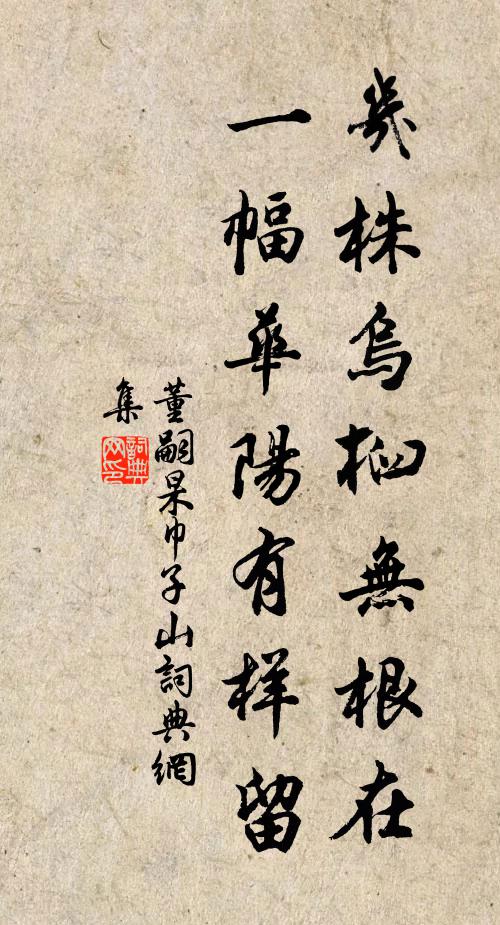 幾株烏桕無根在
一幅華陽有樣留
董嗣杲巾子山詞典網
集
詞典網印